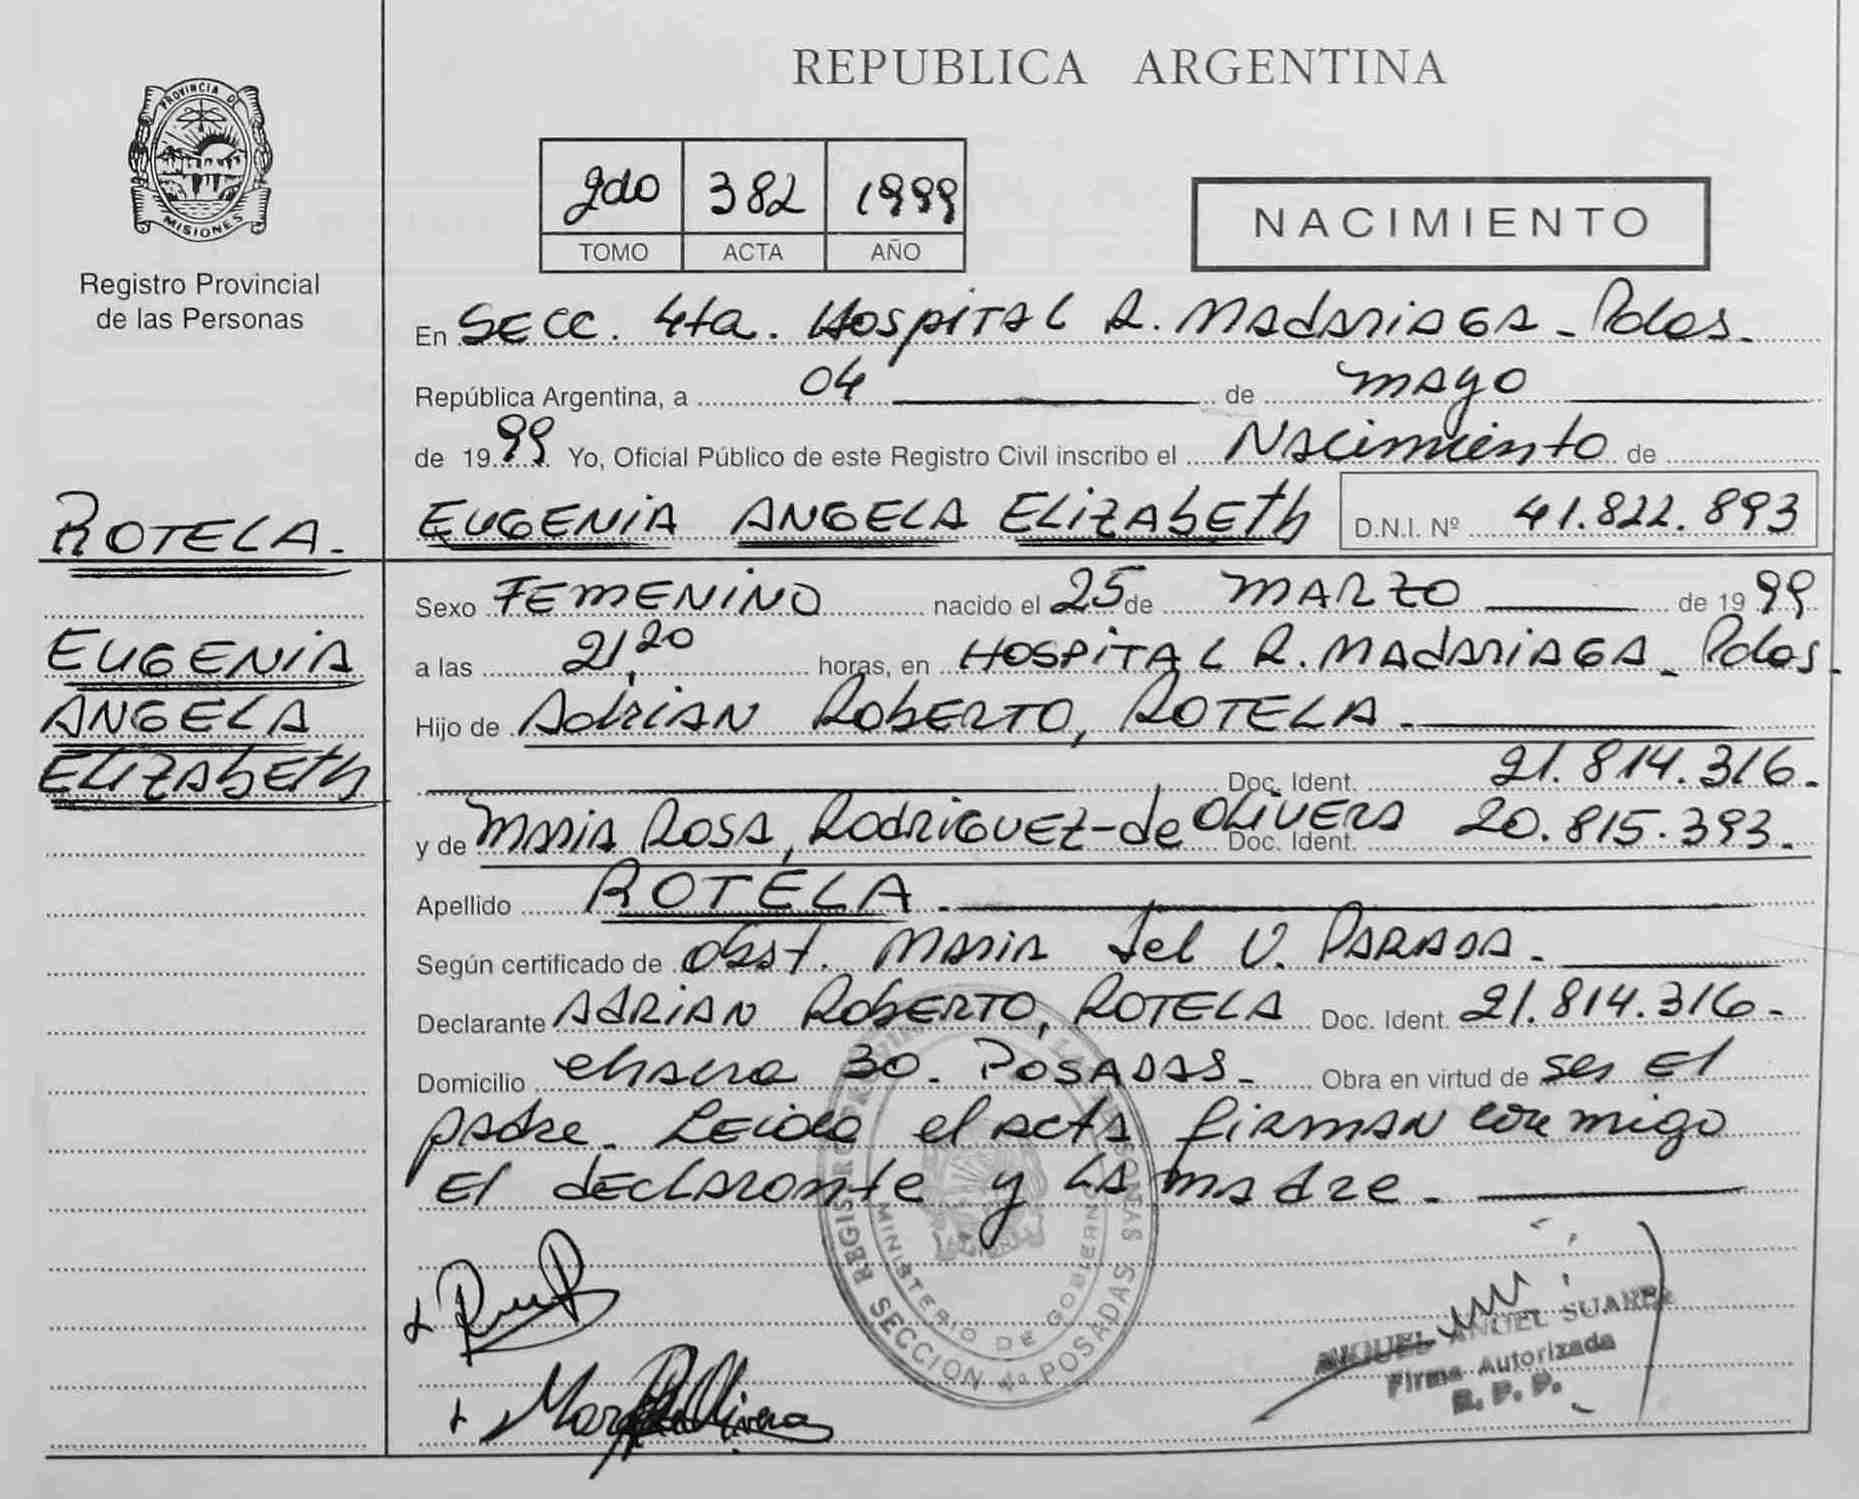 REPUBLICA ARGENTINA
PROVINCIA DE
MISIONES
Registro Provincial
de las Personas
2do 382 1999
TOMO ACTA AÑO
NACIMIENTO
En SECC. 4ta. HospITAL R. MADARIAGA - Pdas.
República Argentina, a 04 de mAyo
de 1999 Yo, Oficial Público de este Registro Civil inscribo el NAcimiento de
ROTELA.
EUGENIA ANGELA ELIZAbETh D.N.I. Nº 41.822.893
Sexo FEMENINO nacido el 25 de MARZO de 1999
EUGENIA
ANGELA
ELIZAbETh
a las 21,20 horas, en HOSPITAL R. MADARIAGA - Pdas.
Hijo de AdRIAN RobERTO, ROTELA.
Doc. Ident. 21.814.316.
y de MARIA ROSA, RodRIGUEZ-de OLIVERA Doc. Ident. 20.815.393.
Apellido ROTELA.
Según certificado de Obst. MARIA del V. PARADA.
Declarante AdRIAN RobERTO, ROTELA Doc. Ident. 21.814.316.
Domicilio chacra 30. POSADAS. Obra en virtud de ser El
padre. Leida el acta firman conmigo
El declarante y LA madre.
REGISTRO PROVINCIAL DE LAS PERSONAS
MINISTERIO DE GOBIERNO
SECCION 4ª POSADAS
MIGUEL ANGEL SUAREZ
Firma Autorizada
R. P. P.